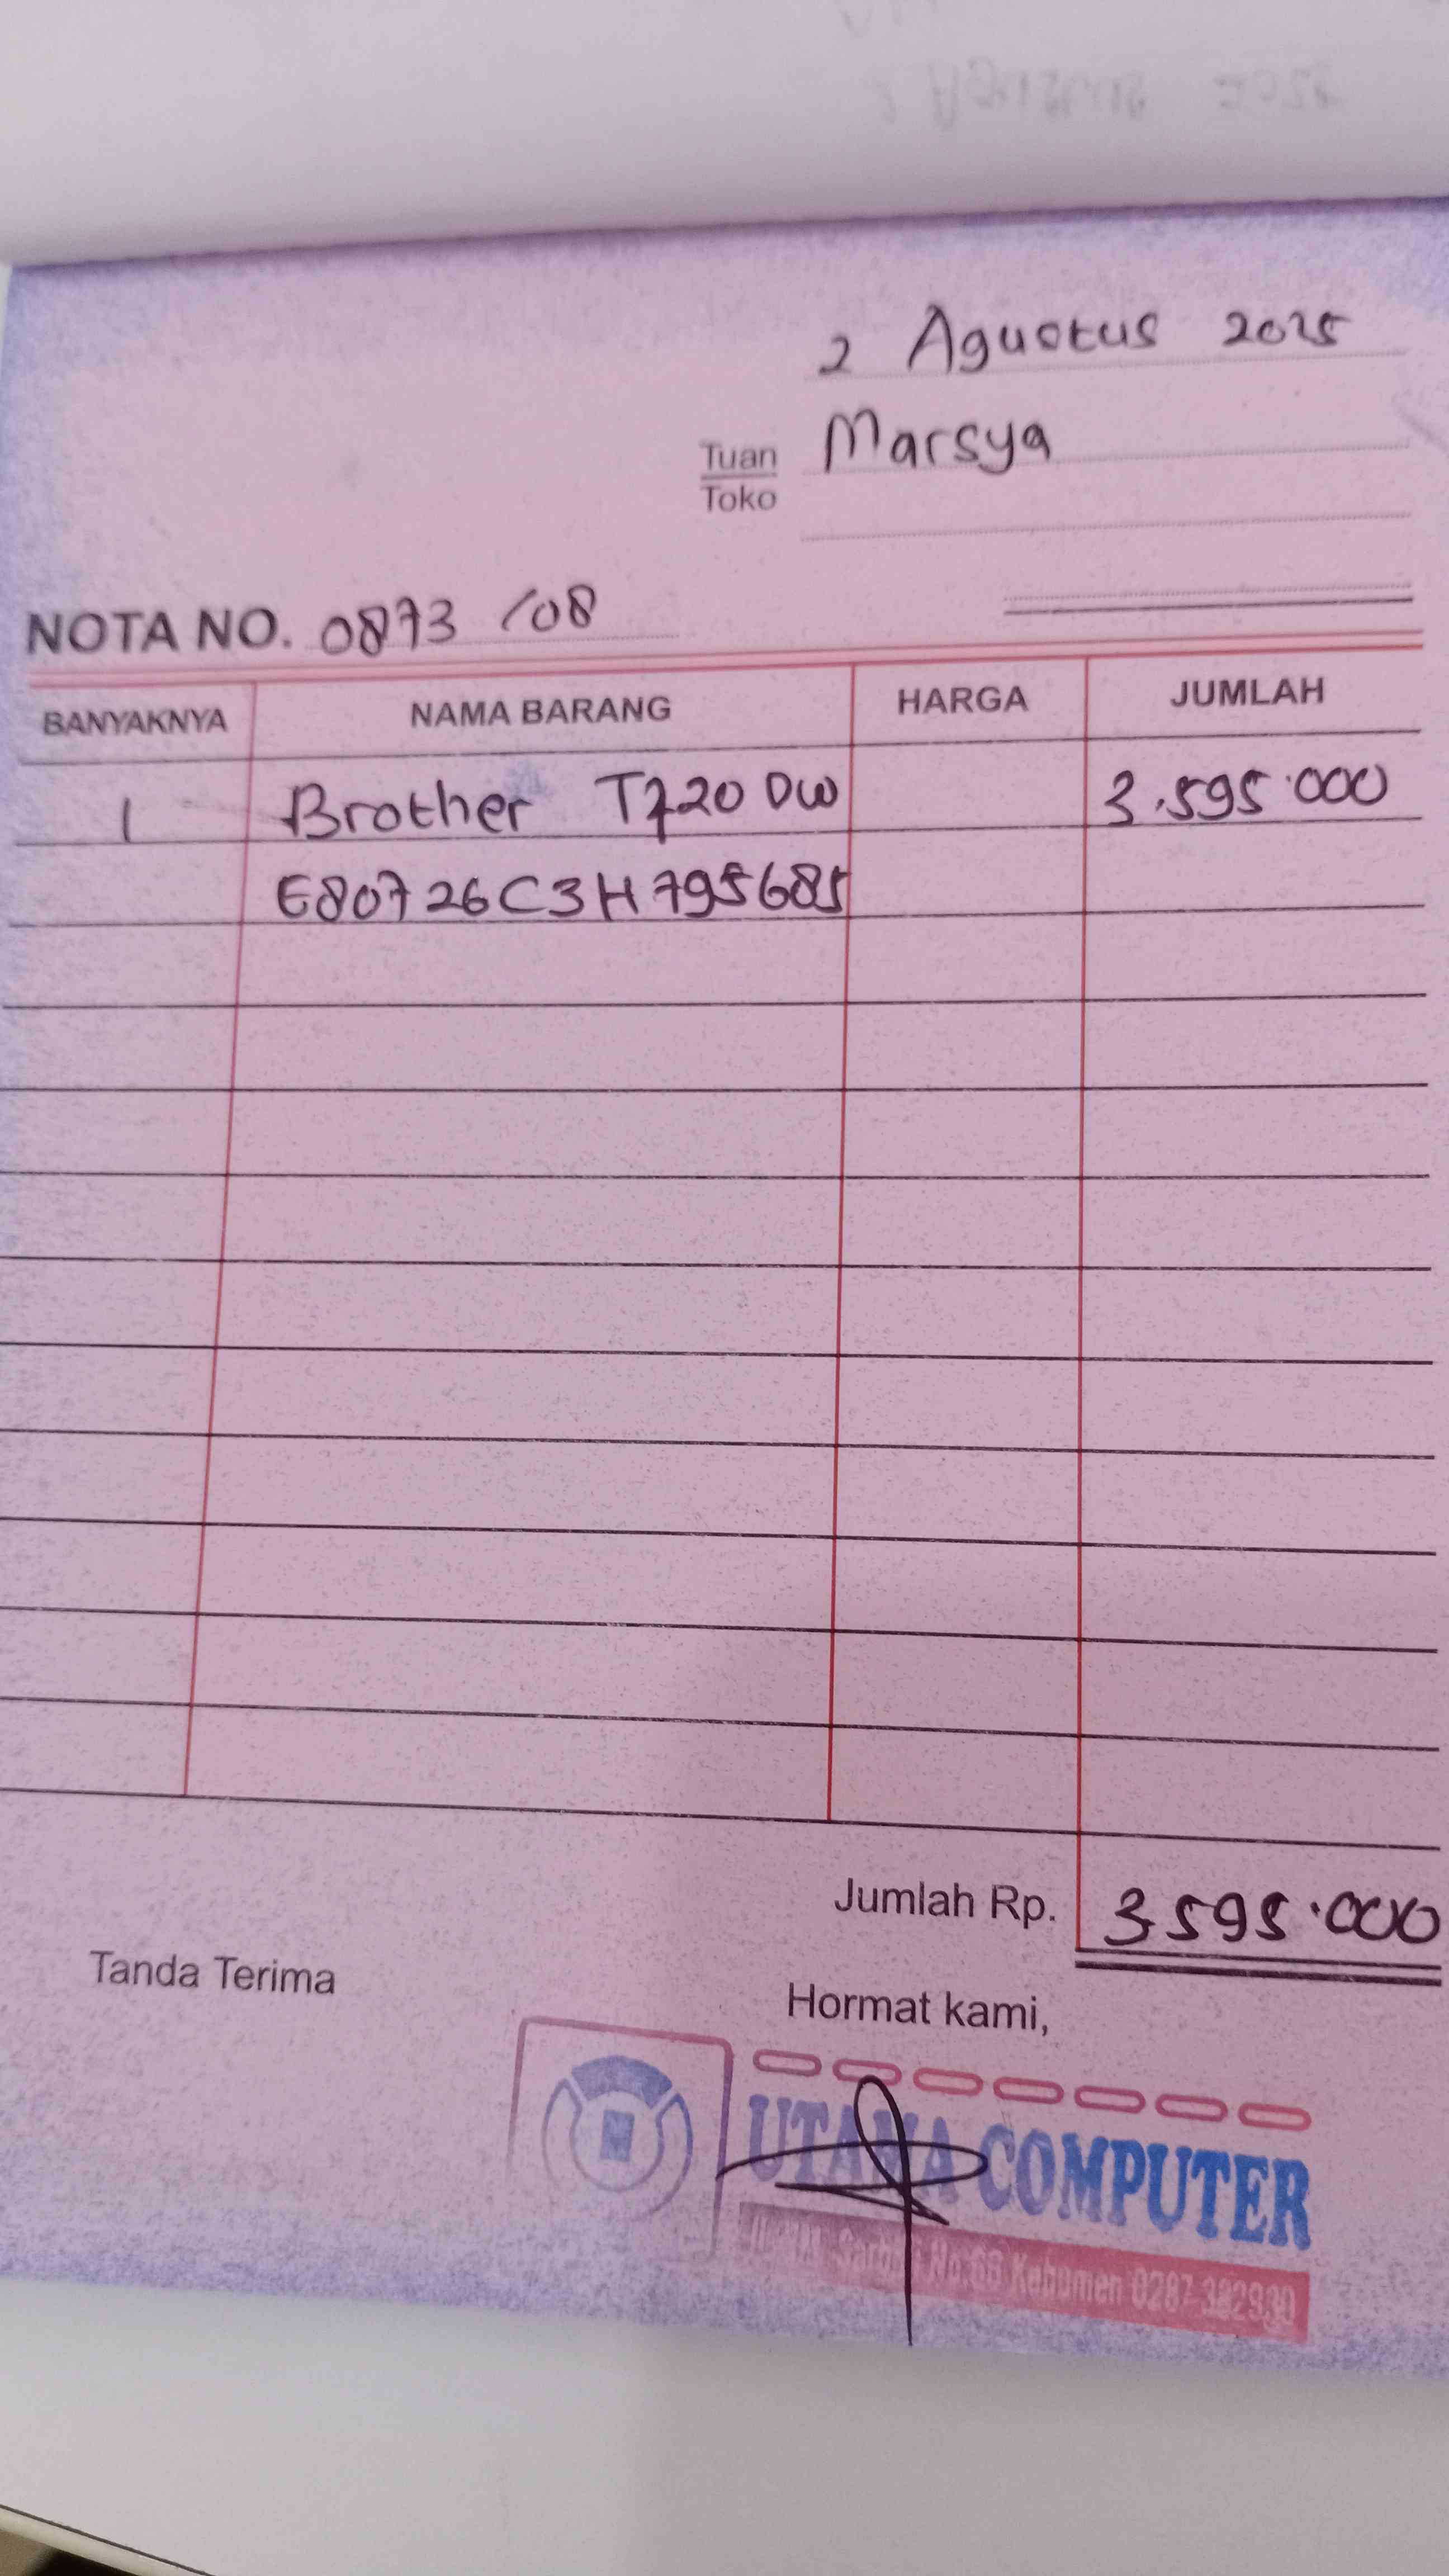 2 Agustus 2025
Tuan Marsya
Toko
NOTA NO. 0873 /08
BANYAKNYA NAMA BARANG HARGA JUMLAH
1 Brother T720 DW 3.595.000
E80726C3H795685
Jumlah Rp. 3.595.000
Tanda Terima
Hormat kami,
UTAMA COMPUTER
No.63 Kebumen 0287 382930